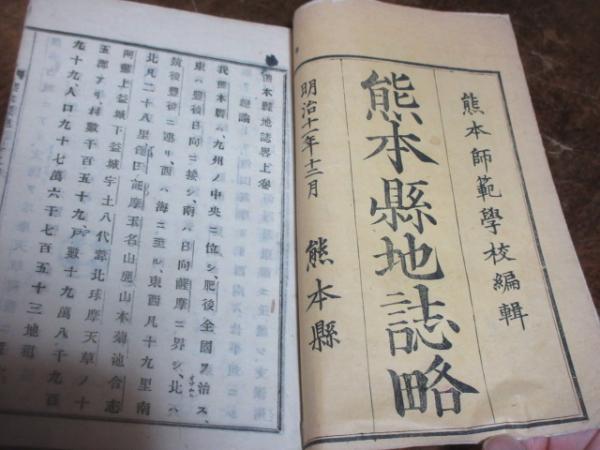 熊本師範學校編輯
熊本縣地誌略
明治十一年十二月 熊本縣
熊本縣地誌畧上卷
總論
我熊本縣ハ九州ノ中央ニ位シ、肥後全國ヲ治ス、
東ハ豊後日向ニ接シ、南ハ日向薩摩ニ界シ、北ハ
筑後豊後ニ連リ、西ハ海ニ至ル、東西凡十九里南
北凡二十八里
阿蘇上益城下益城宇土八代葦北球摩天草ノ十
五郡アリ、村數千百五十九、戸數十九萬八千九百
九十九人口九十七萬六千七百五十三地